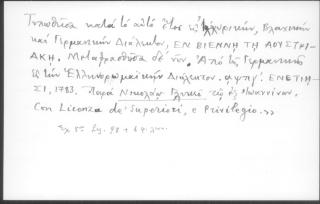 Τυπωθεῖσα κατὰ τὸ αὐτὸ ἔτος εἰς Ἰλλυρικὴν, Βλαχικὴν
καὶ Γερμανικὴν Διάλεκτον, ΕΝ ΒΙΕΝΝΗ ΤΗ ΑΟΥΣΤΡΙ-
ΑΚΗ. Μεταφρασθεῖσα δὲ νῦν. Ἀπὸ τῆς Γερμανικῆς
εἰς τὴν Ἑλληνορωμαϊκὴν Διάλεκτον. αψπγʹ. ΕΝΕΤΙΗ-
ΣΙ, 1783. Παρὰ Νικολάῳ Γλυκεῖ τῷ ἐξ Ἰωαννίνων.
Con Licenza de' Superiori, e Privilegio.»
Σχ. 8ον Σελ. 98 + 6